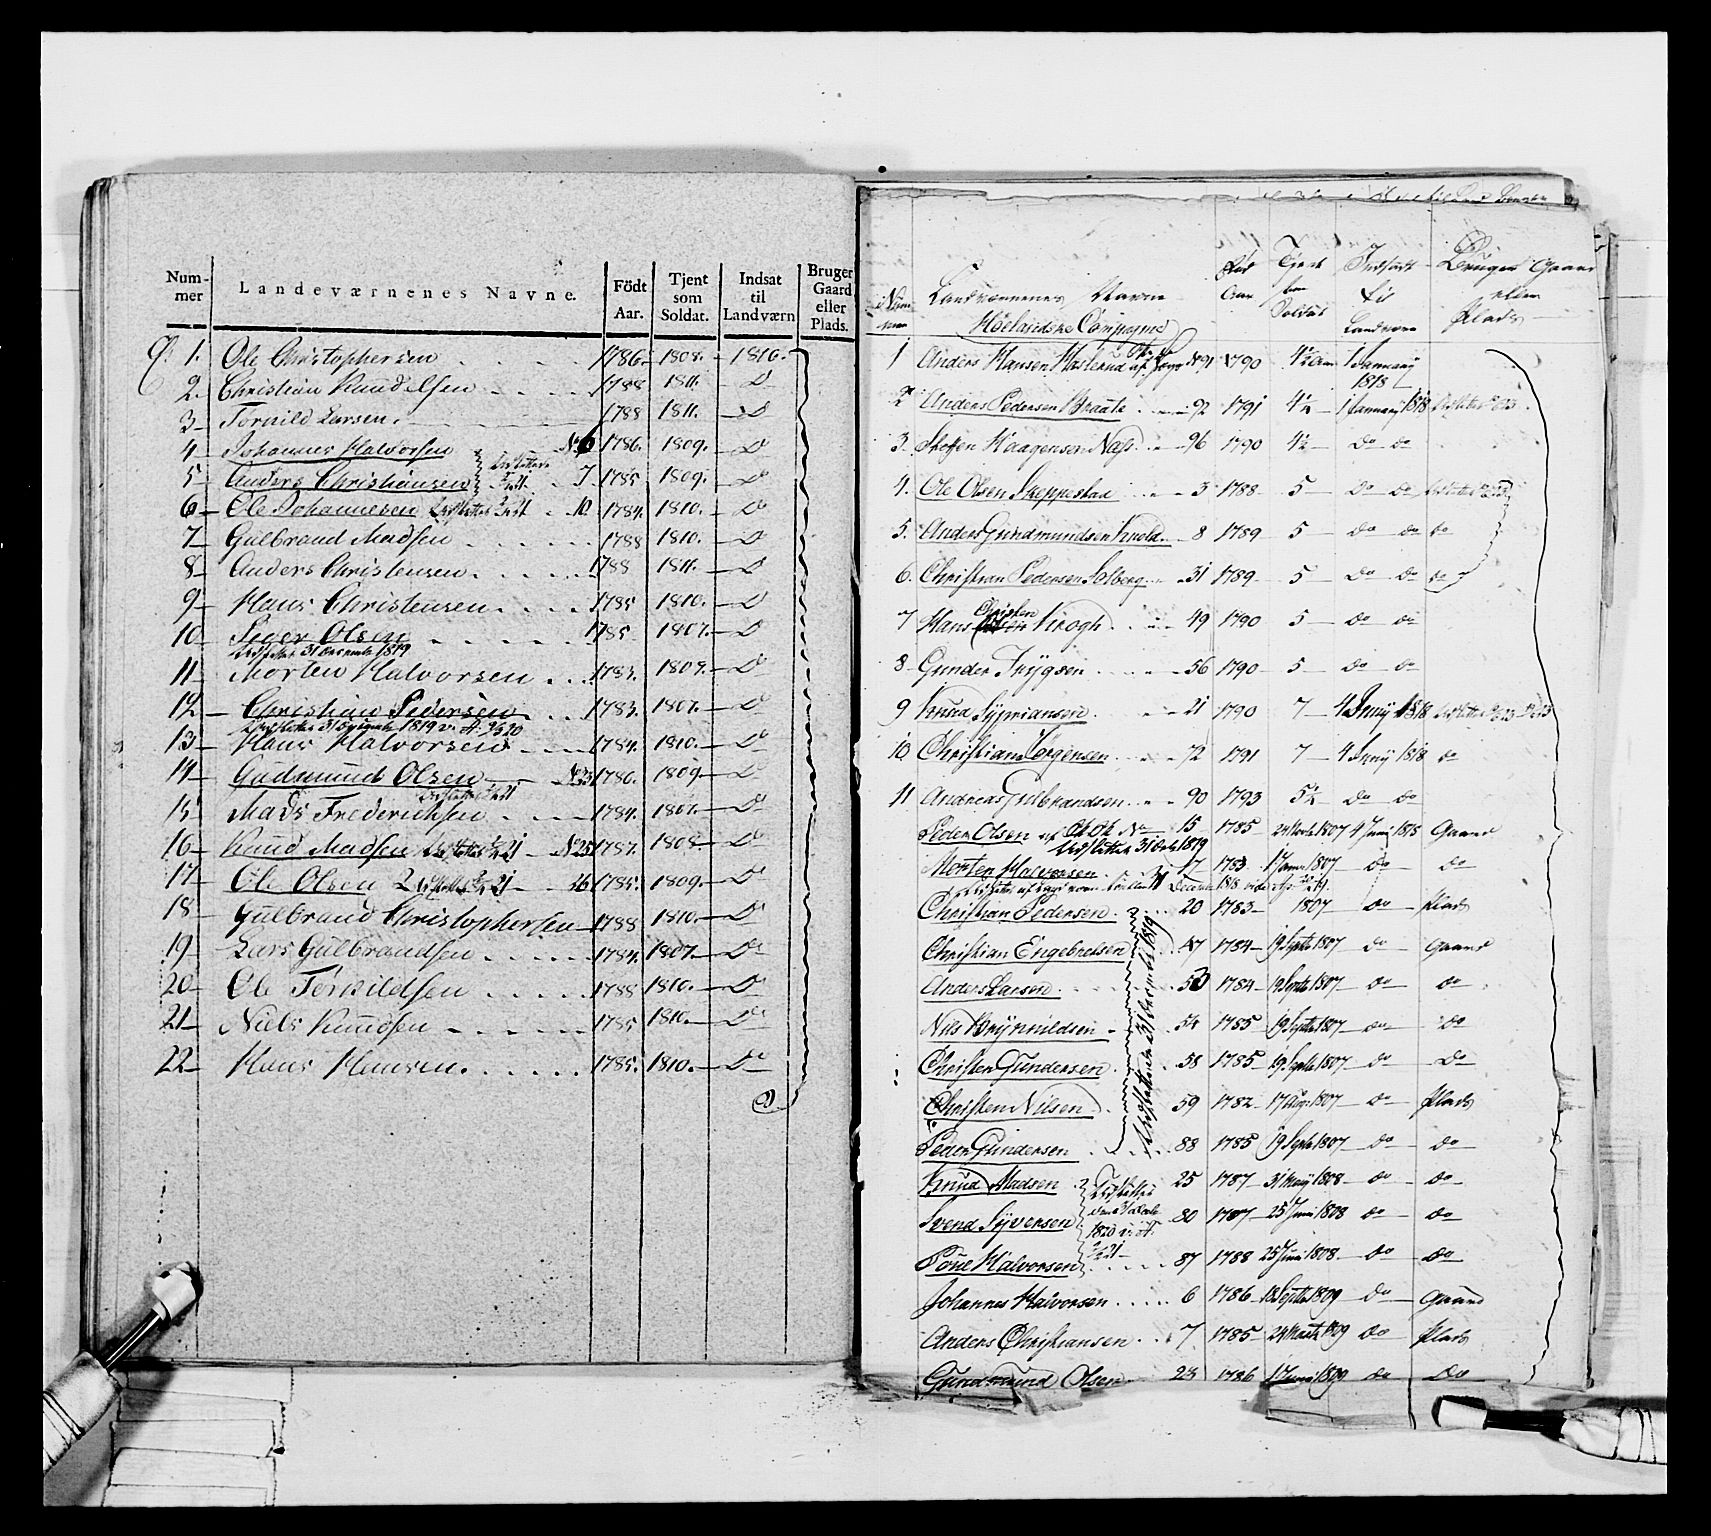 Num-mer | Landeværnenes Navne. | Födt Aar. | Tjent som Soldat. | Indsat til Landværn | Bruger Gaard eller Plads.
1. Ole Christophersen 1786. 1808. 1810.
2. Christian Knudsen 1788 1811. Do
3 Torkild Larsen. 1788 1811. Do
4 Johannes Halvorsen No 6 1786. 1809. Do
5 Anders Christiansen 7 1785 1809. Do
6 Ole Johannesen 10. 1784. 1810. Do
7 Gulbrand Madsen 1788 1810. Do
8 Anders Christensen. 1788 1811. Do
9 Hans Christensen. 1785 1810. Do
10 Siver Olsen 1785. 1807. Do
Udslettet 31 Decemb 1819
11 Morten Halvorsen 1783. 1809. Do
12 Christian Pedersen 1783. 1807. Do
13 Hans Halvorsen 1784. 1810. Do
14 Gudmund Olsen No 23 1786. 1809 Do
15 Mads Frederichsen 1784. 1807. Do
16 Knud Madsen No 25 1787. 1808. Do
17 Ole Olsen 26 1785. 1809. Do
18 Gulbrand Christophersen 1788 1810. Do
19 Lars Gulbrandsen 1784. 1807. Do
20 Ole Torkildsen 1788 1810. Do
21 Niels Knudsen 1785 1810. Do
22 Hans Hansen. 1785. 1810. Do
Num mer | Landværnenes Navne | Fød Aar | Tjent som Soldat | Indsadt til Landværn | Bruger Gaard eller Plads
Hølandske Compagnie
1 Anders Hansen Haslerud No 91 1790 4½ Aar 1 Januarij 1818
2 Anders Pedersen Braate 92 1791 4½ 1 Januarij 1818
3. Steffen Haagensen Næss 96 1790 4½ Do Do
4. Ole Olsen Skeppestad 3 1788 5 Do Do
5. Anders Gundmundsen 8 1789 5 Do Do Do
6. Christian Pedersen Solberg 31 1789 5 Do Do Do
7 Hans Christen Krogh 49 1790 5 Do Do
8 Gunder Trygsen 56 1790 5 Do Do
9 Knud Syvriansen 21 1790 7 4 Junij 1818
10. Christian Jørgensen 72 1791 7 4 Junij 1818 Do
11 Andreas Gulbrandsen 90 1793 5¼ Do Do
Peder Olsen No 15 1785 24 Novbr 1807 4 Juni 1818 Gaard
Udslettet 31 Decb 1819
Morten Halvorsen 17 1783 1 Janr 1807 Do Do
Christian Pedersen 20 1783 1807 Do Plads
Christian Engebretsen 47 1784 19 Septbr 1807 Do Gaard
Anders Larsen 53 1784 19 Septbr 1807 Do Do
Nils Brynildsen 54 1785 19 Septbr 1807 Do Do
Christen Gundersen 58 1785 19 Septbr 1807 Do Do
Christen Nilsen 59 1782 17 Aug. 1807 Do Plads
Peder Gundersen 88 1785 19 Septbr 1807 Do Do
Udslettede 31 December 1819
Knud Madsen 25 1787 31 Maij 1808 Do Do
Svend Syversen 80 1787 25 Juni 1808 Do Do
Poul Halvorsen 87 1788 25 Juni 1808. Do Do
Johannes Halvorsen 6 1786 18 Septbr 1809 Do Gaard
Anders Christiansen 7 1785 24 Martz 1809 Do Plads
Gundmund Olsen 23 1786 1 Juni 1809 Do Do